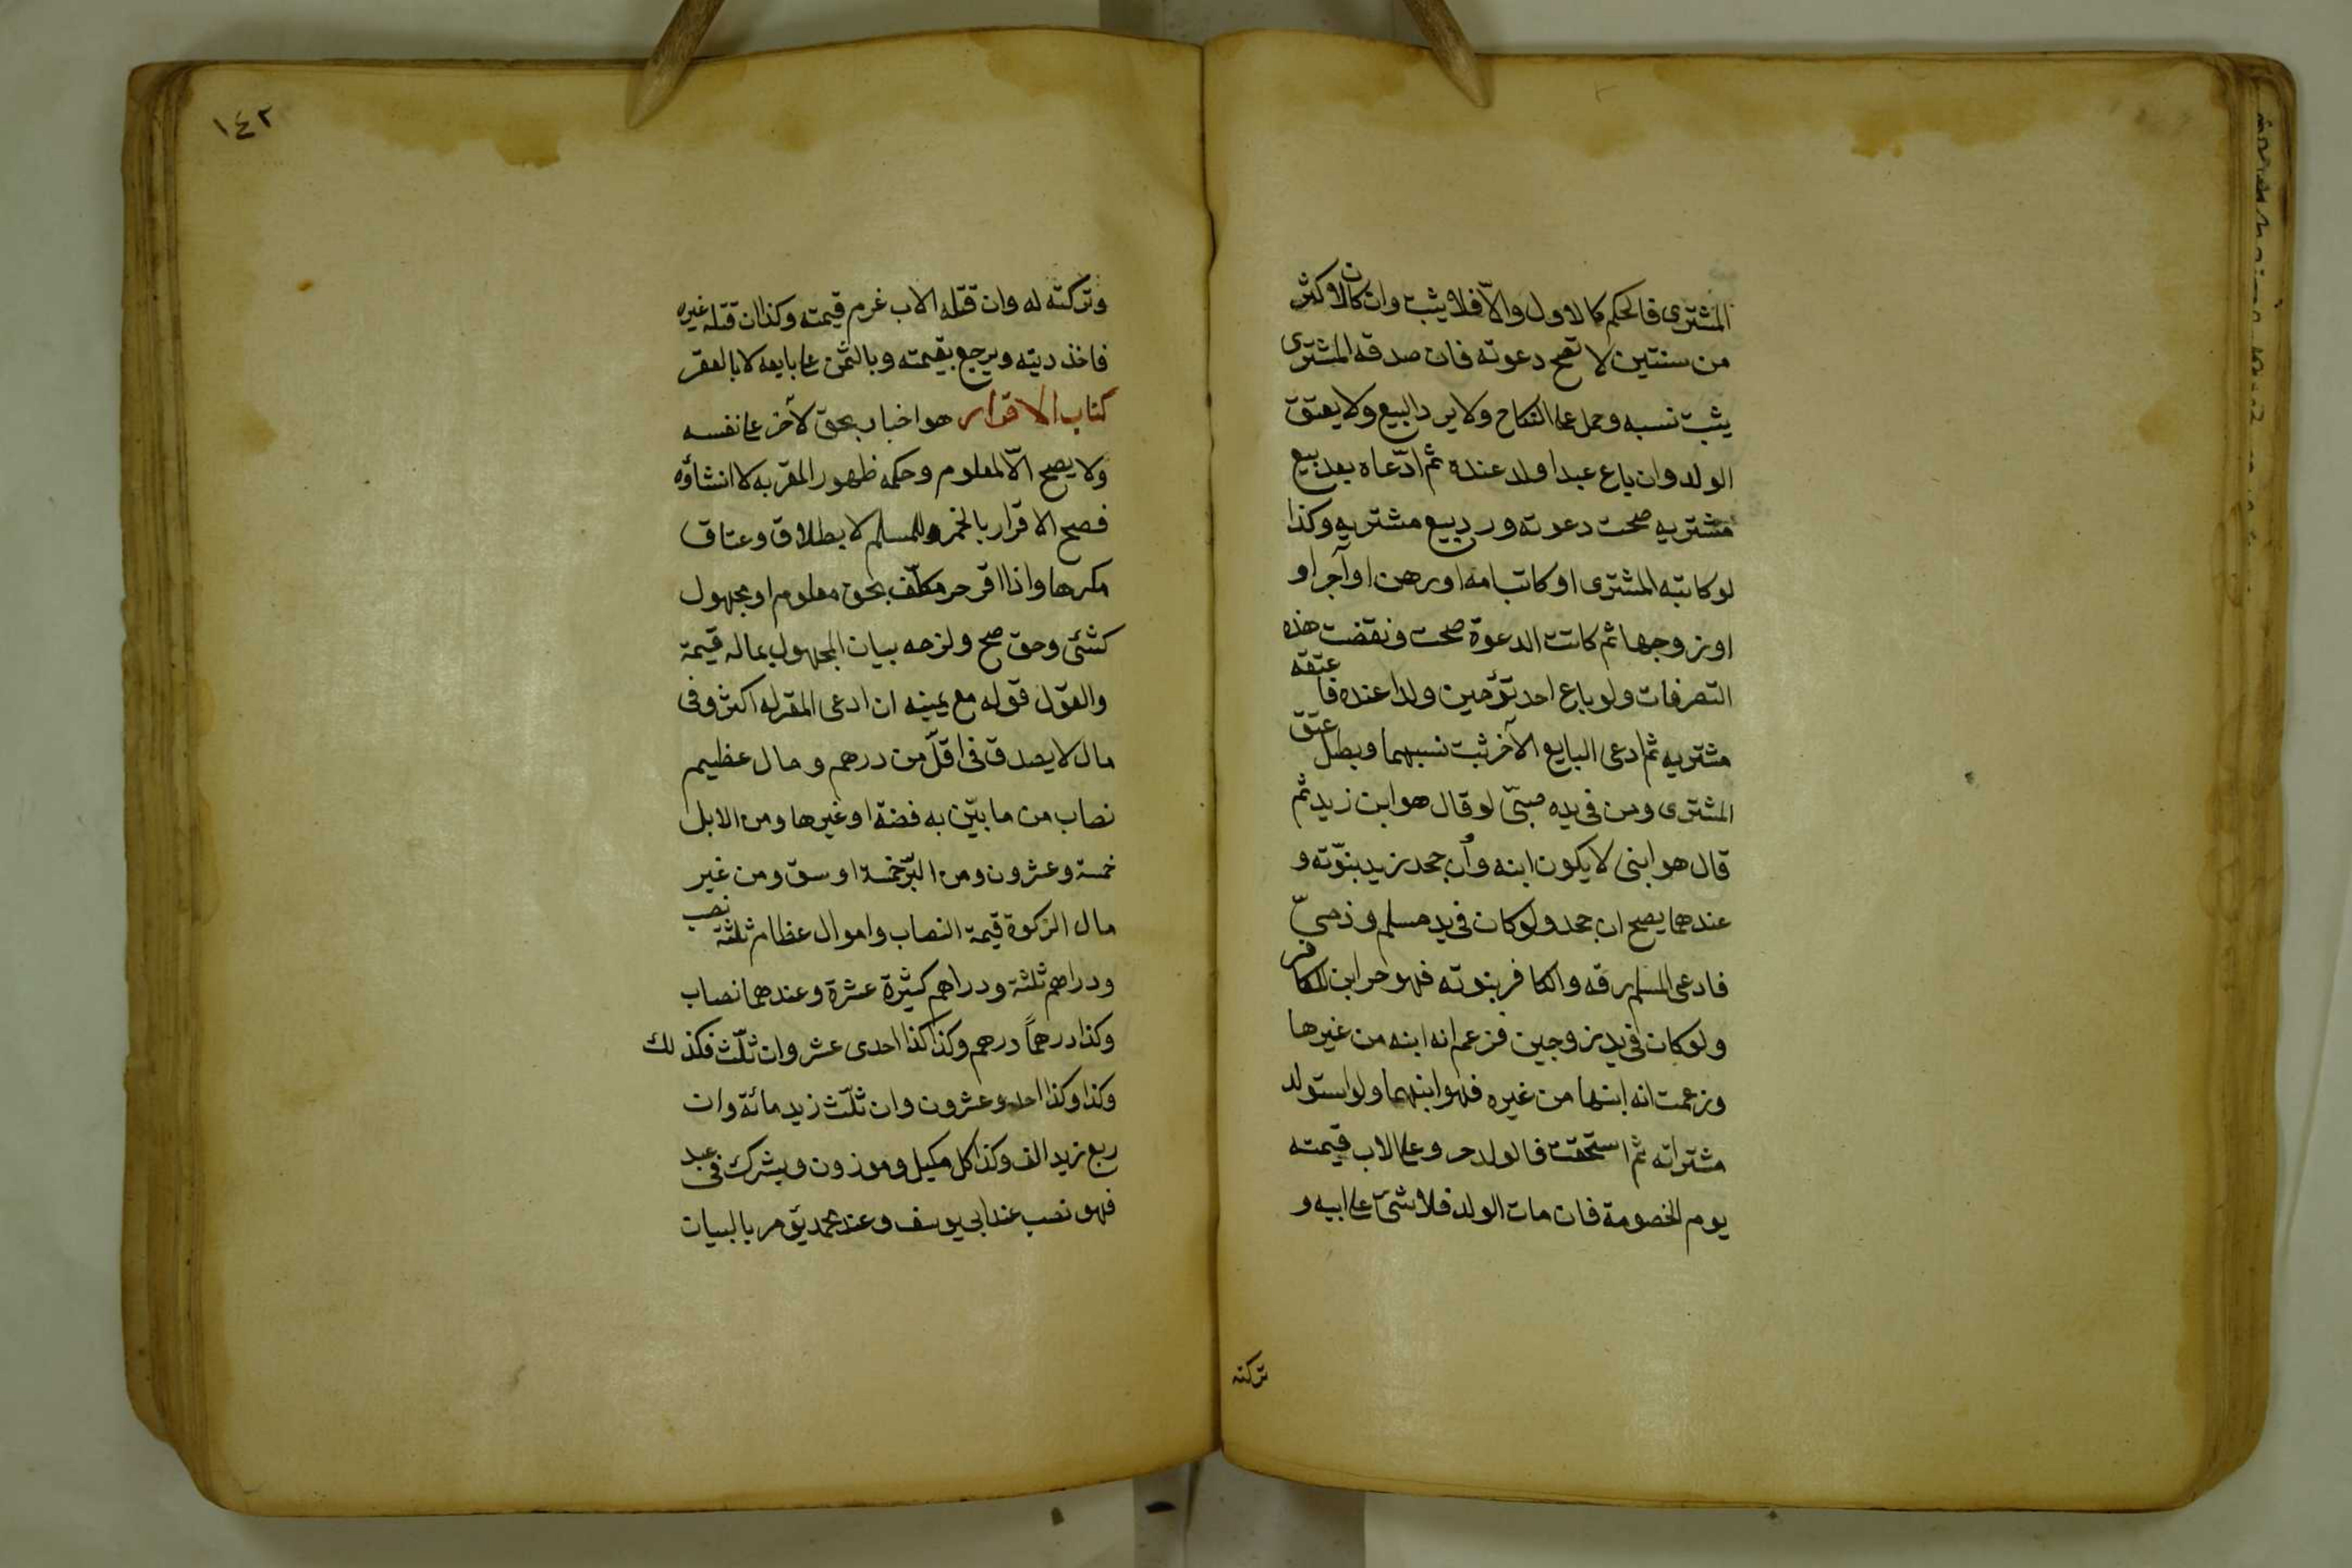 المشترى فالحكم كالاول والّا فلا يثبت وان كان لاكثر
من سنتين لا تصح دعوته فان صدقه المشترى
يثبت نسبه وحمل على النكاح ولا يرد البيع ولا يعتق
الولد وان باع عبدا ولد عنده ثم ادّعاه بعد بيع
مشتريه صحت دعوته ورد بيع مشتريه وكذا
لو كاتبه المشترى او كاتب امه او رهن او آجر او
او زوجها ثم كانت الدعوة صحت ونقضت هذه
التصرفات ولو باع احد تؤمين ولدا عنده فاعتقه
مشتريه ثم ادعى البايع الآخر ثبت نسبهما وبطل عتق
المشترى ومن فى يده صبىّ لو قال هو ابن زيد ثم
قال هو ابنى لا يكون ابنه وان جحد زيد بنوّته و
عندهما يصح ان جحد ولو كان فى يد مسلم وذمىّ
فادعى المسلم رقه والكافر بنوته فهو حر ابن الكافر
ولو كان فى يد زوجين فزعم انه ابنه من غيرها
وزعمت انه ابنها من غيره فهو ابنهما ولو استولد
مشتراته ثم استحقت فالولد حر وعلى الاب قيمته
يوم الخصومة فان مات الولد فلا شئ على ابيه و
تركته
١٤٢
وتركته له وان قتله الاب غرم قيمته وكذا ان قتله غيره
فاخذ ديته ويرجع بقيمته وبالثمن على بايعه لا بالعقر
كتاب الاقرار هو اخبار بحق لآخر على نفسه
ولا يصح الّا لمعلوم وحكمه ظهور المقر به لا انشاؤه
فصح الاقرار بالخمر للمسلم لا بطلاق وعتاق
مكرها واذا اقر حر مكلّف بحق معلوم او مجهول
كشئ وحق صح ولزمه بيان المجهول بماله قيمة
والقول قوله مع يمينه ان ادعى المقر له اكثر وفى
مال لا يصدق فى اقلّ من درهم ومال عظيم
نصاب من ما بيّن به فضة او غيرها ومن الابل
خمسة وعشرون ومن البرّ خمسة اوسق ومن غير
مال الزكوة قيمة النصاب واموال عظام ثلثة نصب
ودراهم ثلثة ودراهم كثيرة عشرة وعندهما نصاب
وكذا درهماً درهم وكذا كذا احدى عشر وان ثلّث فكذلك
وكذا وكذا احد وعشرون وان ثلّث زيد مائة وان
ربع زيد الف وكذا كل مكيل وموزون وبشرك فى عبد
فهو نصب عند ابى يوسف وعند محمد يؤمر بالبيان